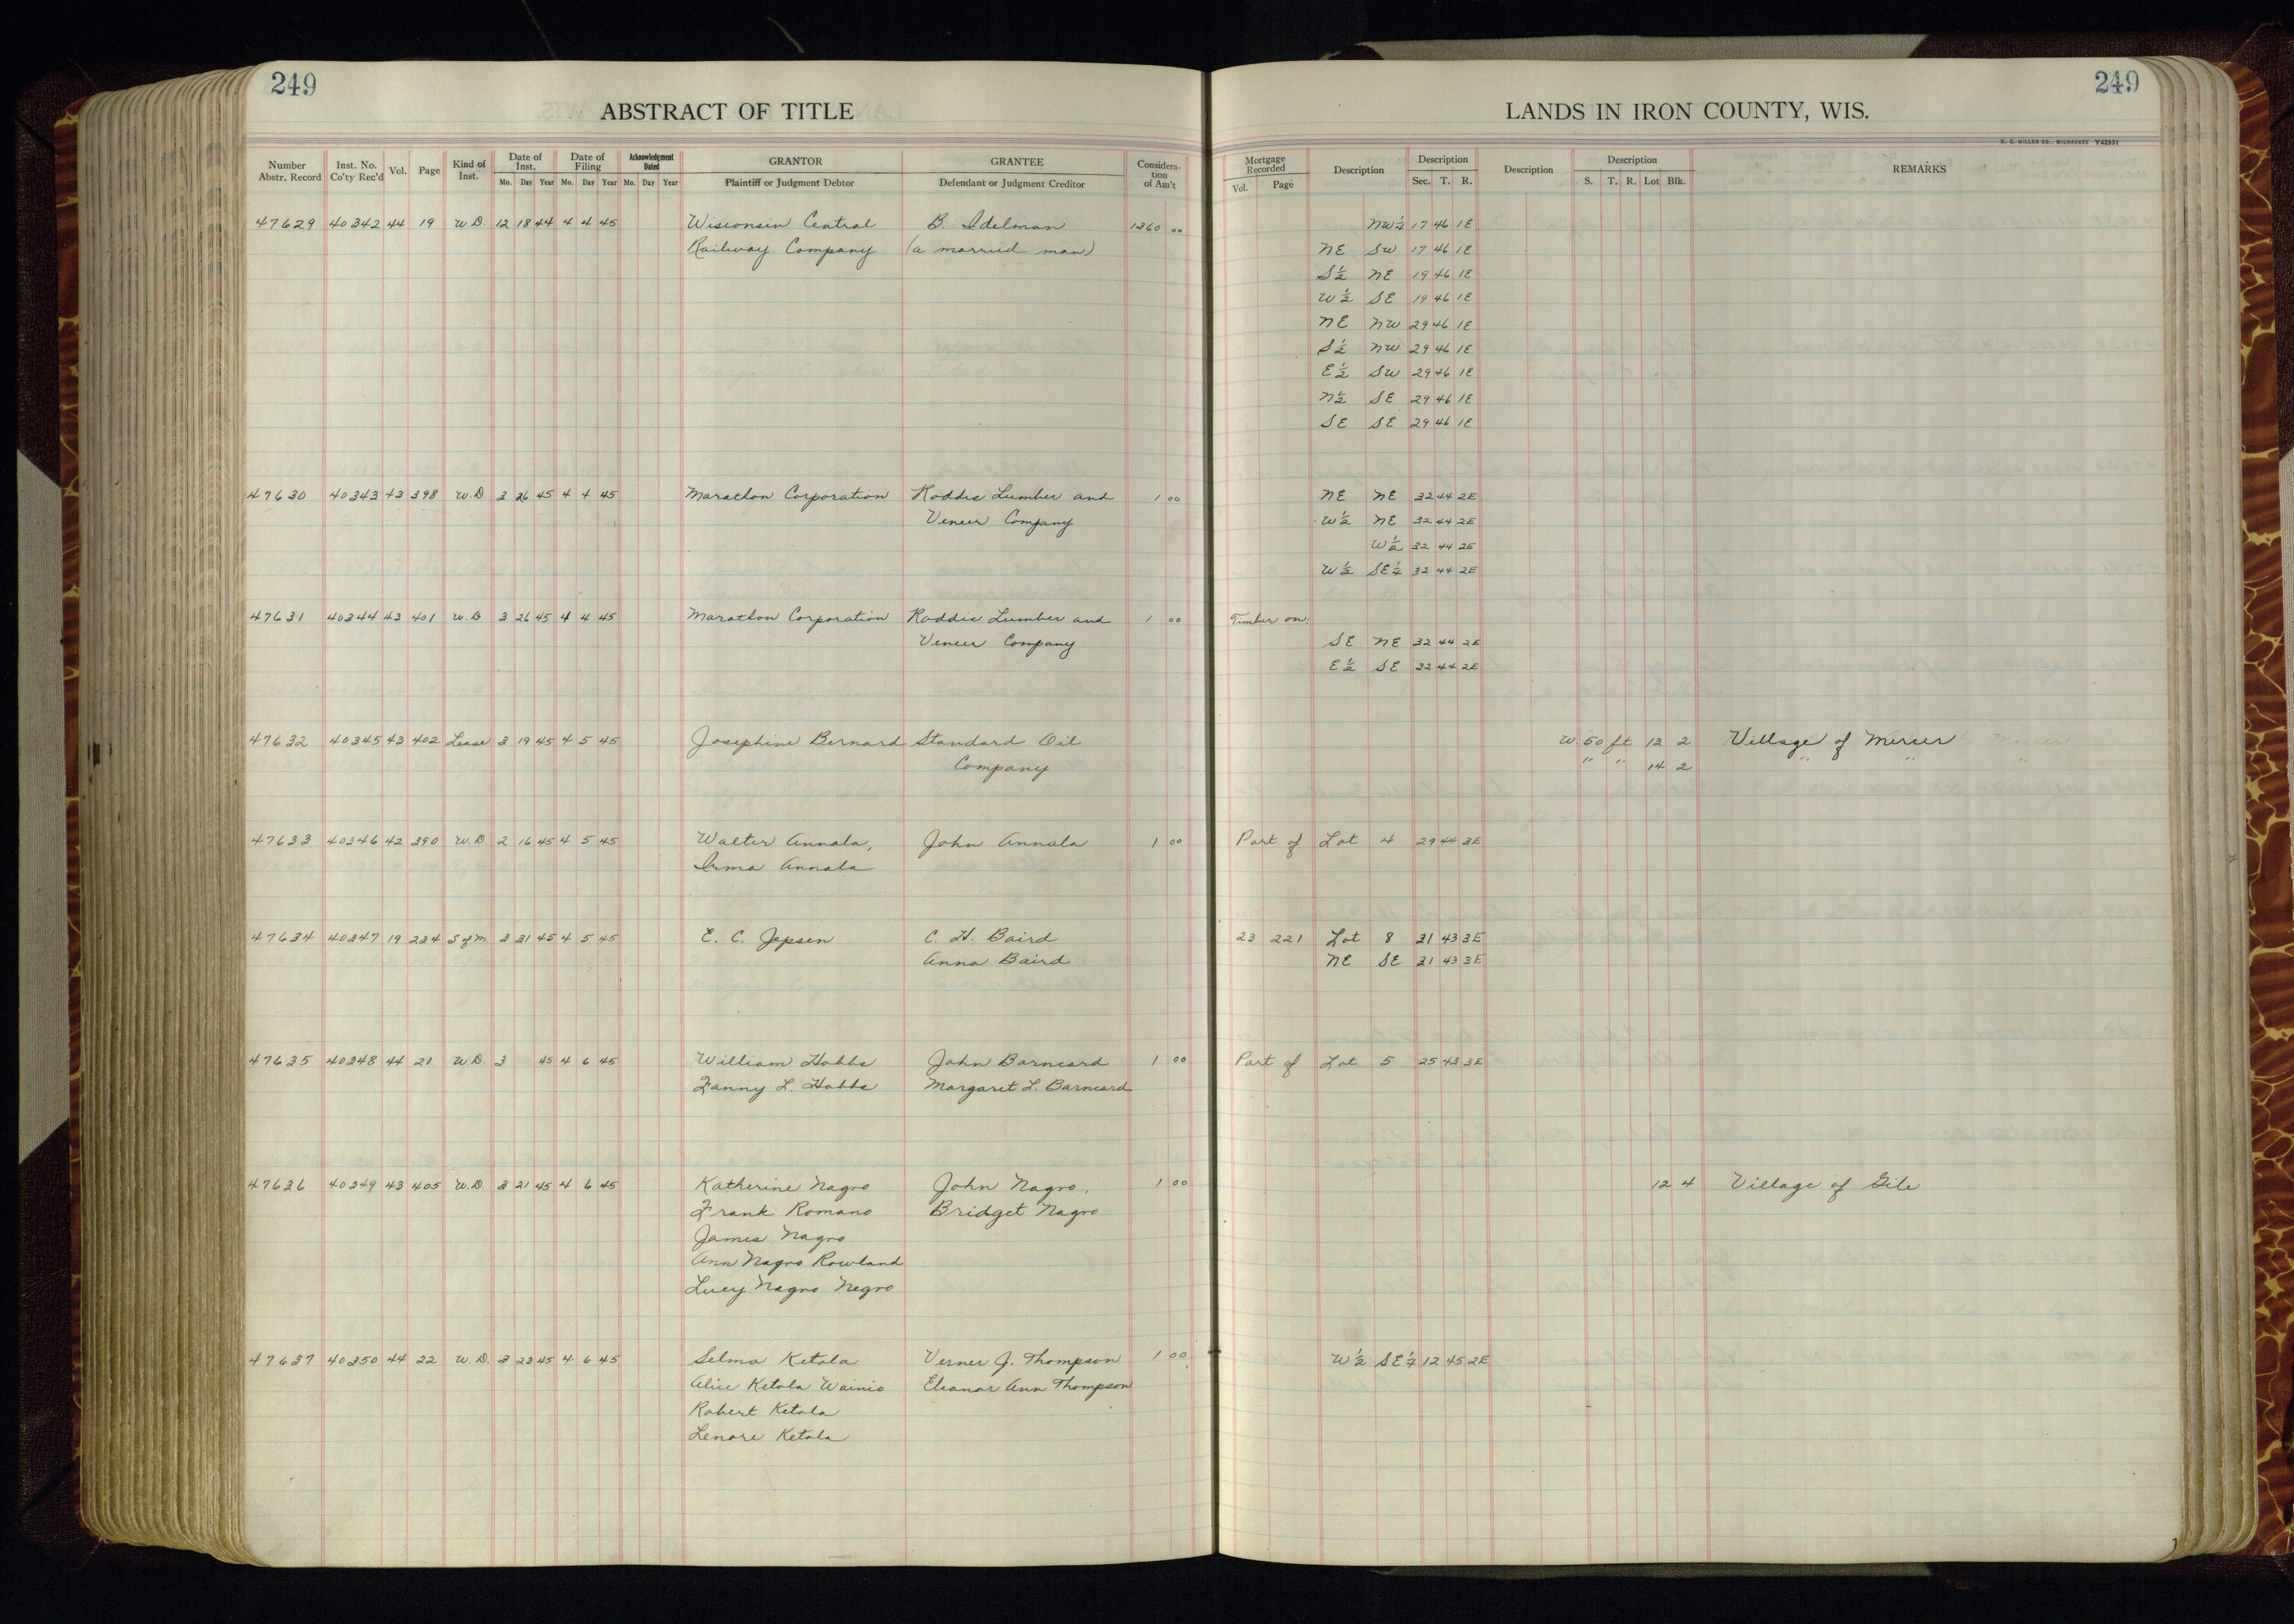 249
ABSTRACT OF TITLE
Number Abstr. Record Inst. No. Co'ty Rec'd Vol. Page Kind of Inst. Date of Inst. Mo. Day Year Date of Filing Mo. Day Year Acknowledgment Dated Mo. Day Year GRANTOR Plaintiff or Judgment Debtor GRANTEE Defendant or Judgment Creditor Considera-tion of Am't
47629 40342 44 19 W.D. 12 18 44 4 4 45 Wisconsin Central B. Idelman 1360 00
Railway Company (a married man)
47630 40343 43 398 W.D. 3 26 45 4 4 45 Marathon Corporation Roddis Lumber and 1 00
Veneer Company
47631 40344 43 401 W.D 3 26 45 4 4 45 Marathon Corporation Roddis Lumber and 1 00
Veneer Company
47632 40345 43 402 Lease 3 19 45 4 5 45 Josephine Bernard Standard Oil
Company
47633 40346 42 390 W.D. 2 16 45 4 5 45 Walter Annala, John Annala 1 00
Irma Annala
47634 40347 19 234 S of M. 3 31 45 4 5 45 E. C. Jepsen C. H. Baird
Anna Baird
47635 40348 44 21 W.D. 3 45 4 6 45 William Hobbs John Barneard 1 00
Fanny L. Hobbs Margaret L. Barneard
47636 40349 43 405 W.D. 3 21 45 4 6 45 Katherine Nagro John Nagro, 1 00
Frank Romano Bridget Nagro
James Nagro
Ann Nagro Rowland
Lucy Nagro Negro
47637 40350 44 22 W.D. 3 23 45 4 6 45 Selma Ketola Verner J. Thompson 1 00
Alice Ketola Wainio Eleanor Ann Thompson
Robert Ketola
Lenore Ketola
249
LANDS IN IRON COUNTY, WIS.
H. C. MILLER CO., MILWAUKEE Y42931
Mortgage Recorded Vol. Page Description Description Sec. T. R. Description Description S. T. R. Lot Blk. REMARKS
NW¼ 17 46 1E
NE SW 17 46 1E
S½ NE 19 46 1E
W½ SE 19 46 1E
NE NW 29 46 1E
S½ NW 29 46 1E
E½ SW 29 46 1E
N½ SE 29 46 1E
SE SE 29 46 1E
NE NE 32 44 2E
W½ NE 32 44 2E
W½ 32 44 2E
W½ SE¼ 32 44 2E
Timber on:
SE NE 32 44 2E
E½ SE 32 44 2E
W. 50 ft 12 2 Village of Mercer
" " 14 2 " " "
Part of Lot 4 29 44 3E
23 221 Lot 8 31 43 3E
NE SE 31 43 3E
Part of Lot 5 25 43 3E
12 4 Village of Gile
W½ SE¼ 12 45 2E